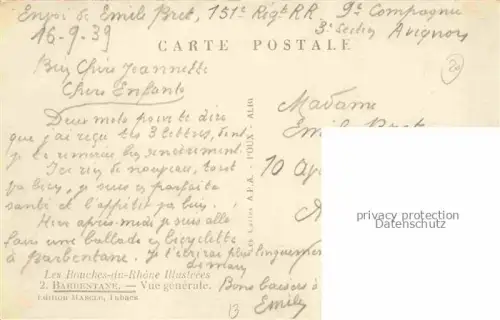 Envoi de Emile Bret, 151e Rég. RR 9e Compagnie
3e Section Avignon
16-9-39
CARTE POSTALE
Bien Chère Jeannette
Chers Enfants
Deux mots pour te dire
que j'ai reçu tes 3 lettres, dont
je te remercie bien sincèrement.
Ici rien de nouveau, tout
va bien, je suis en parfaite
santé et l'appétit va bien.
Hier après-midi je suis allé
faire une ballade en bicyclette
à Barbentane. Je t'écrirai plus longuement
demain
Bons baisers à
Emile
Les Bouches-du-Rhône Illustrées
2. BARBENTANE. — Vue générale.
Edition MABELE, Tabacs
Les Cartes A.P.A. - POUX - ALBI
Madame
Emile Bret
10
privacy protection
Datenschutz
13
20